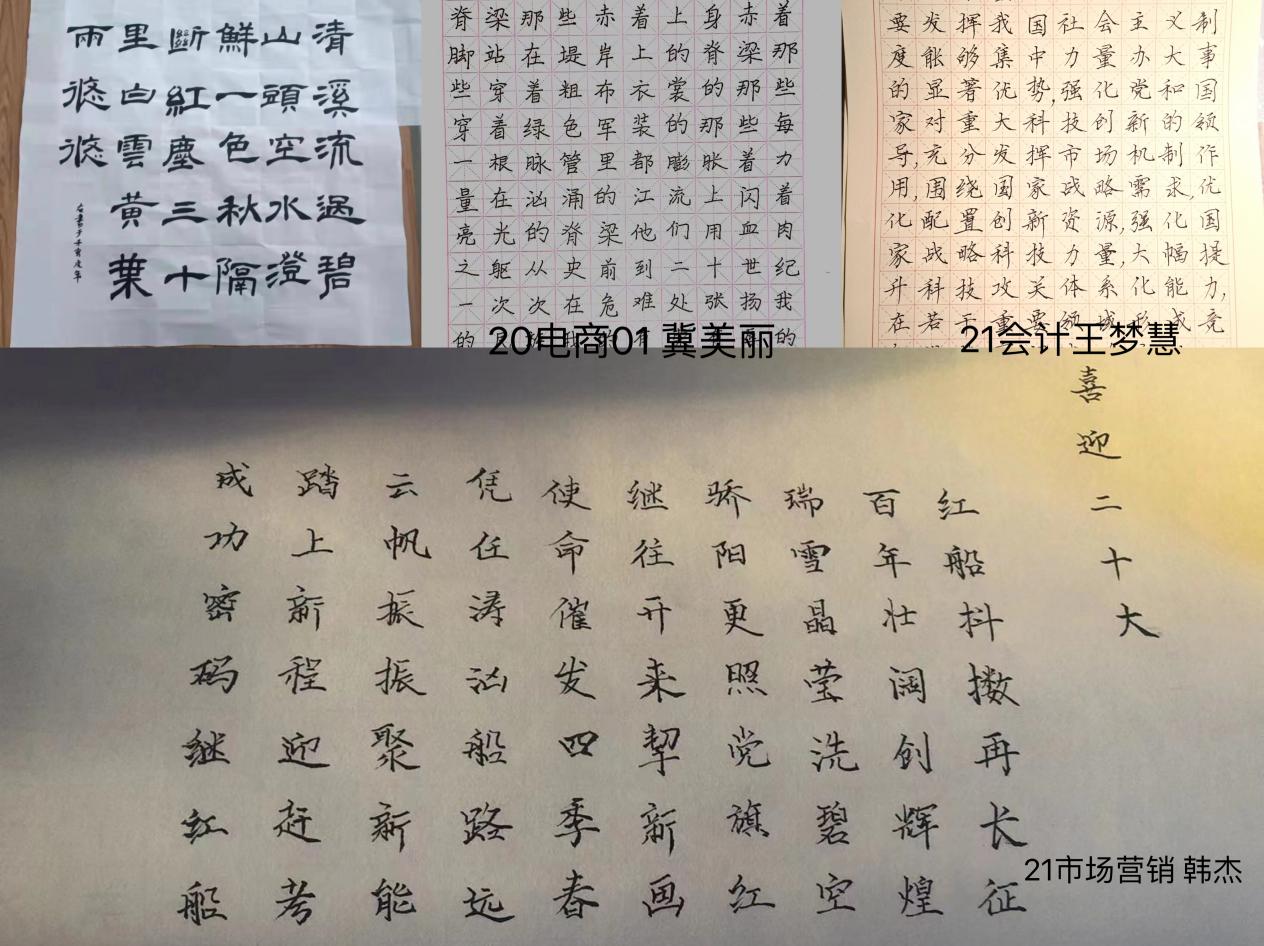 清溪流過碧
山頭空水澄
鮮一色秋隔
斷紅塵三十
里白雲黃葉
兩悠悠
脊梁那些赤着上身赤着
脚站在堤岸上的脊梁那
些穿着粗布衣裳的那些
穿着绿色军装的那些每
一根脉管里都膨胀着力
量在汹涌的江流上闪着
亮光的脊梁他们用血肉
之躯从史前到二十世纪
一次次在危难处张扬我
的
20电商01 冀美丽
要发挥我国社会主义制
度能够集中力量办大事
的显著优势,强化党和国
家对重大科技创新的领
导,充分发挥市场机制作
用,围绕国家战略需求,优
化配置创新资源,强化国
家战略科技力量,大幅提
升科技攻关体系化能力,
在若干重要领域形成竞
21会计王梦慧
喜迎二十大
红船抖擞再长征
百年壮阔创辉煌
瑞雪晶莹洗碧空
骄阳更照党旗红
继往开来挈新画
使命催发四季春
凭任涛汹船路远
云帆振振聚新能
踏上新程迎赶考
成功密码继红船
21市场营销 韩杰